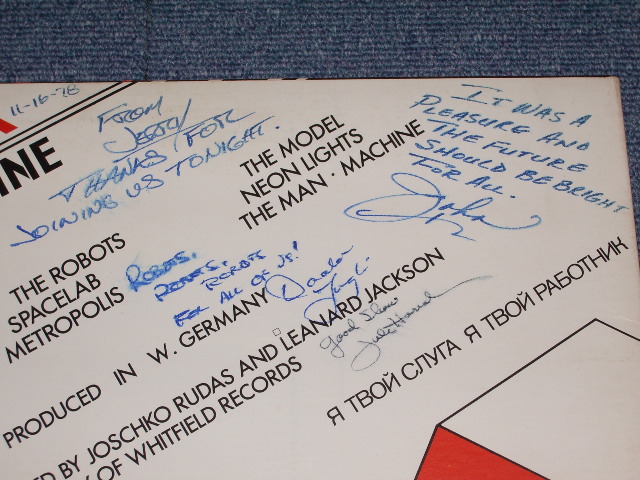 11-16-78
INE
FROM
JERRY
THANKS FOR
JOINING US TONIGHT.
IT WAS A
PLEASURE AND
THE FUTURE
SHOULD BE BRIGHT
FOR ALL.
John
THE MODEL
NEON LIGHTS
THE MAN · MACHINE
THE ROBOTS
SPACELAB
METROPOLIS
ROBOTS,
ROBOTS,
ROBOTS
FOR ALL OF US!
PRODUCED IN W. GERMANY
JOSCHKO RUDAS AND LEANARD JACKSON
ED BY
OF WHITFIELD RECORDS
Good Show
Я ТВОЙ СЛУГА Я ТВОЙ РАБОТНИК